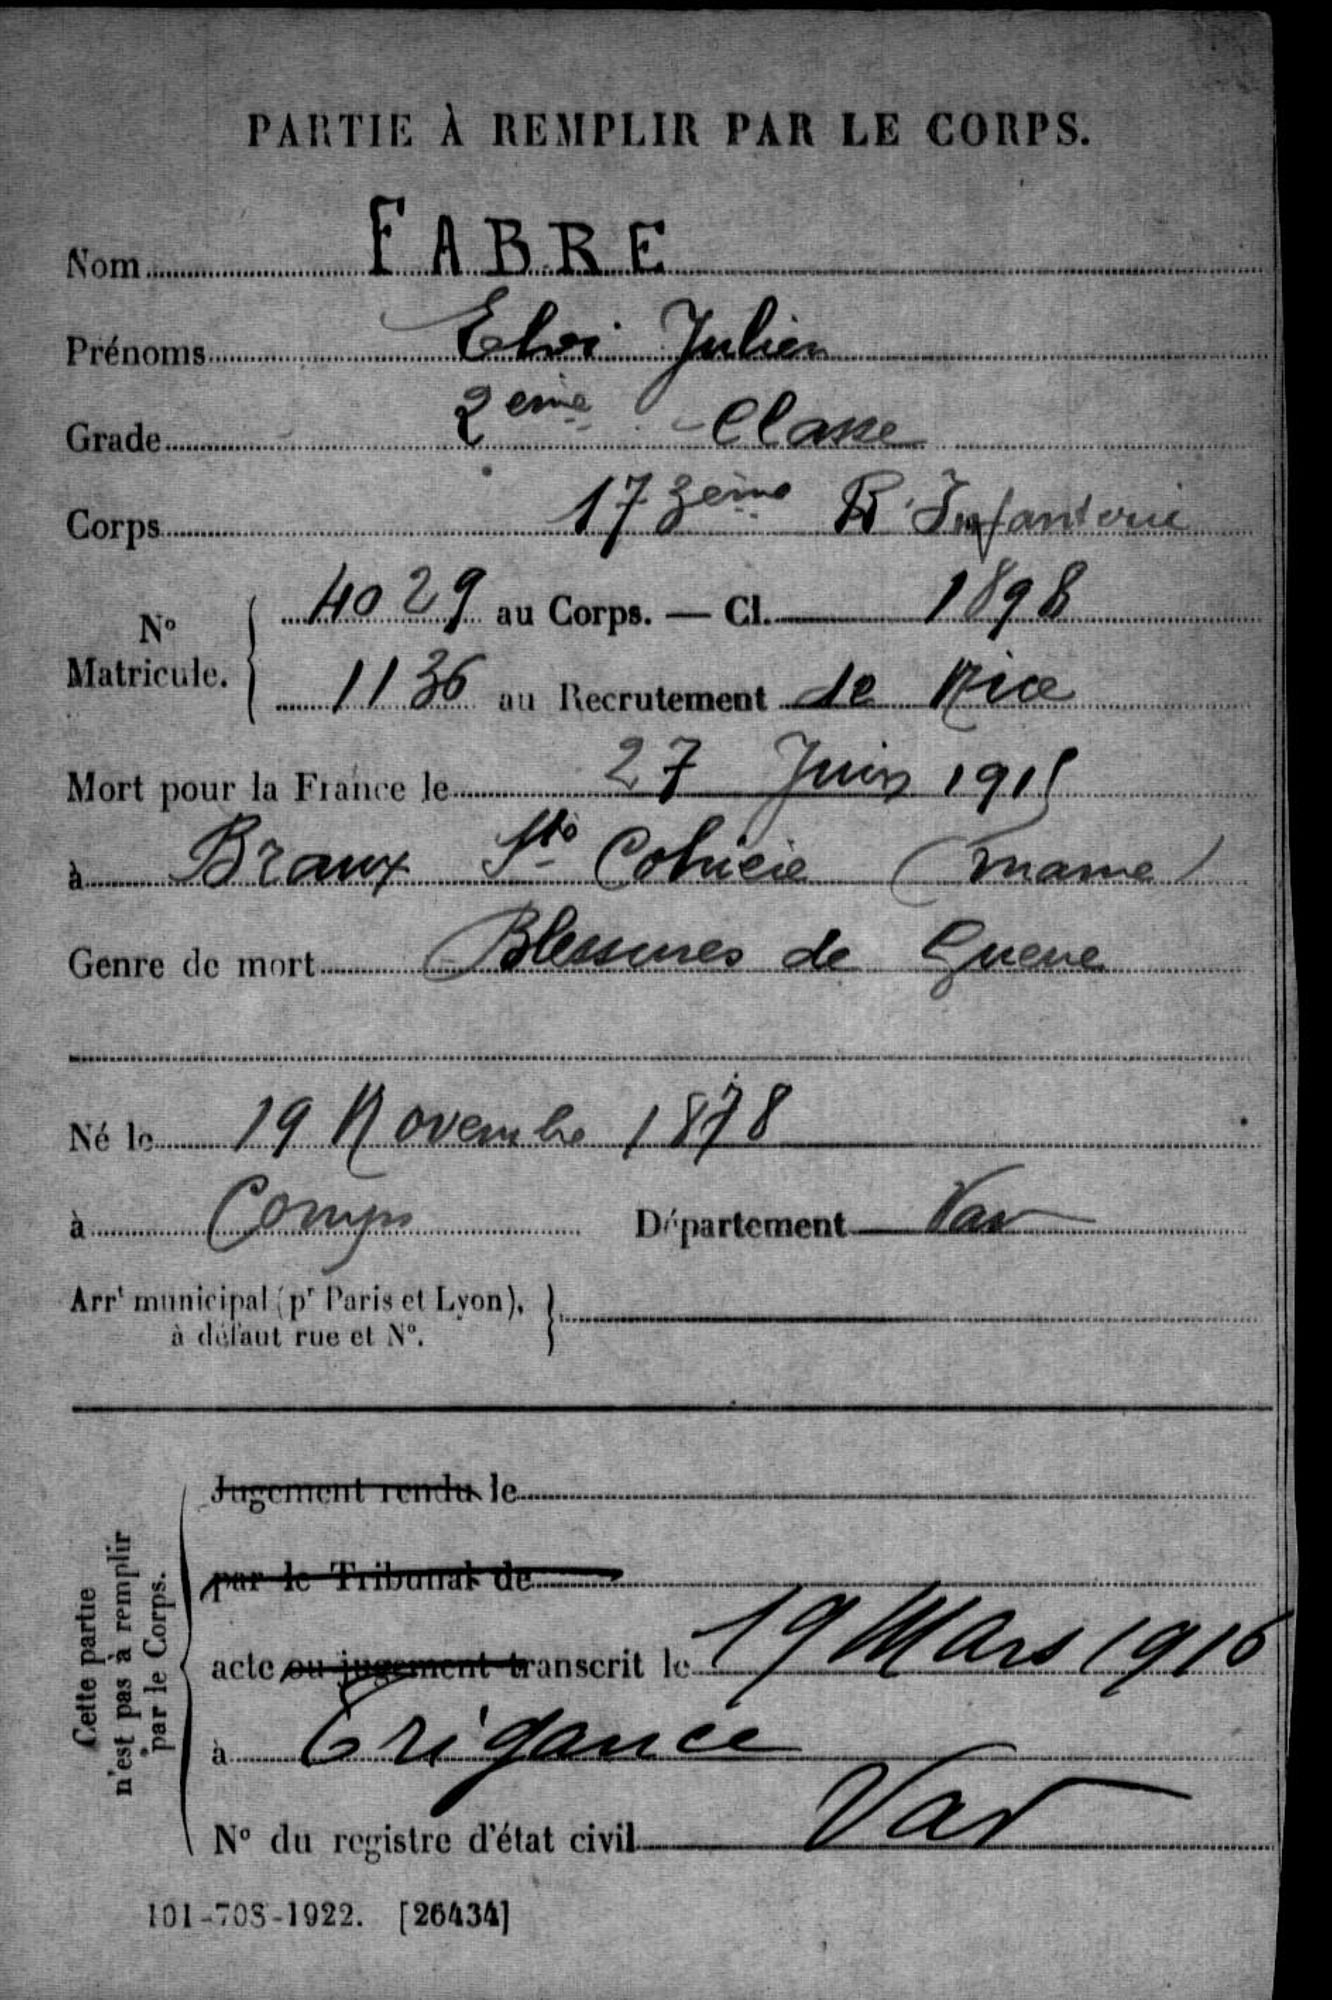 PARTIE À REMPLIR PAR LE CORPS.
Nom FABRE
Prénoms Eloi Julien
Grade 2ème Classe
Corps 173ème R. Infanterie
N° Matricule. 4029 au Corps. — Cl. 1898
1136 au Recrutement de Nice
Mort pour la France le 27 Juin 1915
à Braux Ste Cohière (Marne)
Genre de mort Blessures de Guerre
Né le 19 Novembre 1878
à Comps Département Var
Arrt municipal (pr Paris et Lyon),
à défaut rue et N°.
Cette partie
n'est pas à remplir
par le Corps.
Jugement rendu le
par le Tribunal de
acte ou jugement transcrit le 19 Mars 1916
à Trigance
N° du registre d'état civil Var
101-708-1922. [26434]